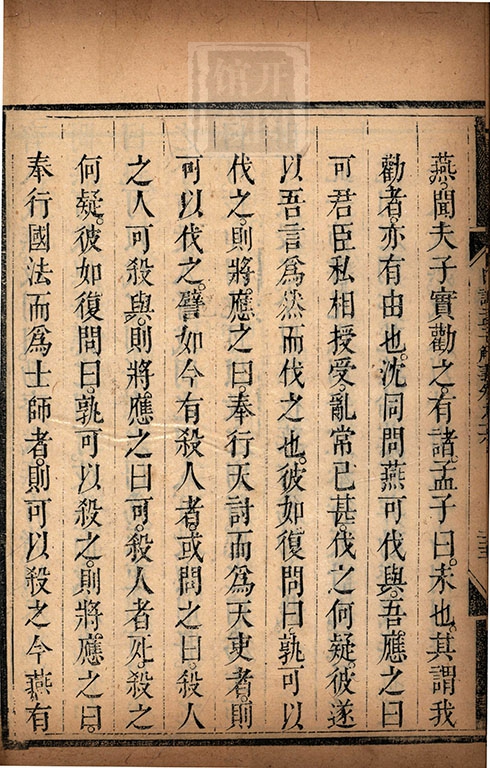 燕。聞夫子實勸之。有諸。孟子曰。未也。其謂我
勸者。亦有由也。沈同問燕可伐與。吾應之曰
可。君臣私相授受。亂常已甚。伐之何疑。彼遂
以吾言爲然而伐之也。彼如復問曰。孰可以
伐之。則將應之曰。奉行天討而爲天吏者。則
可以伐之。譬如今有殺人者。或問之曰。殺人
之人可殺與。則將應之曰可。殺人者死。殺之
何疑。彼如復問曰。孰可以殺之。則將應之曰。
奉行國法而爲士師者。則可以殺之今燕有